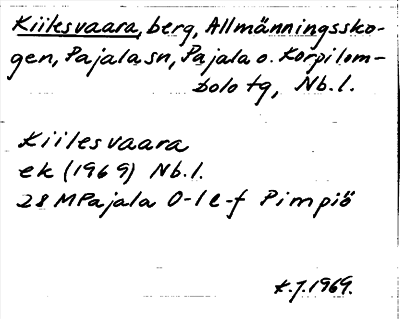 Kiilesvaara, berg, Allmänningssko-
gen, Pajala sn, Pajala o. Korpilom-
bolo tg, Nb.l.
Kiilesvaara
ek (1969) Nb.l.
28 M Pajala 0-1 e-f Pimpiö
K.J. 1969.